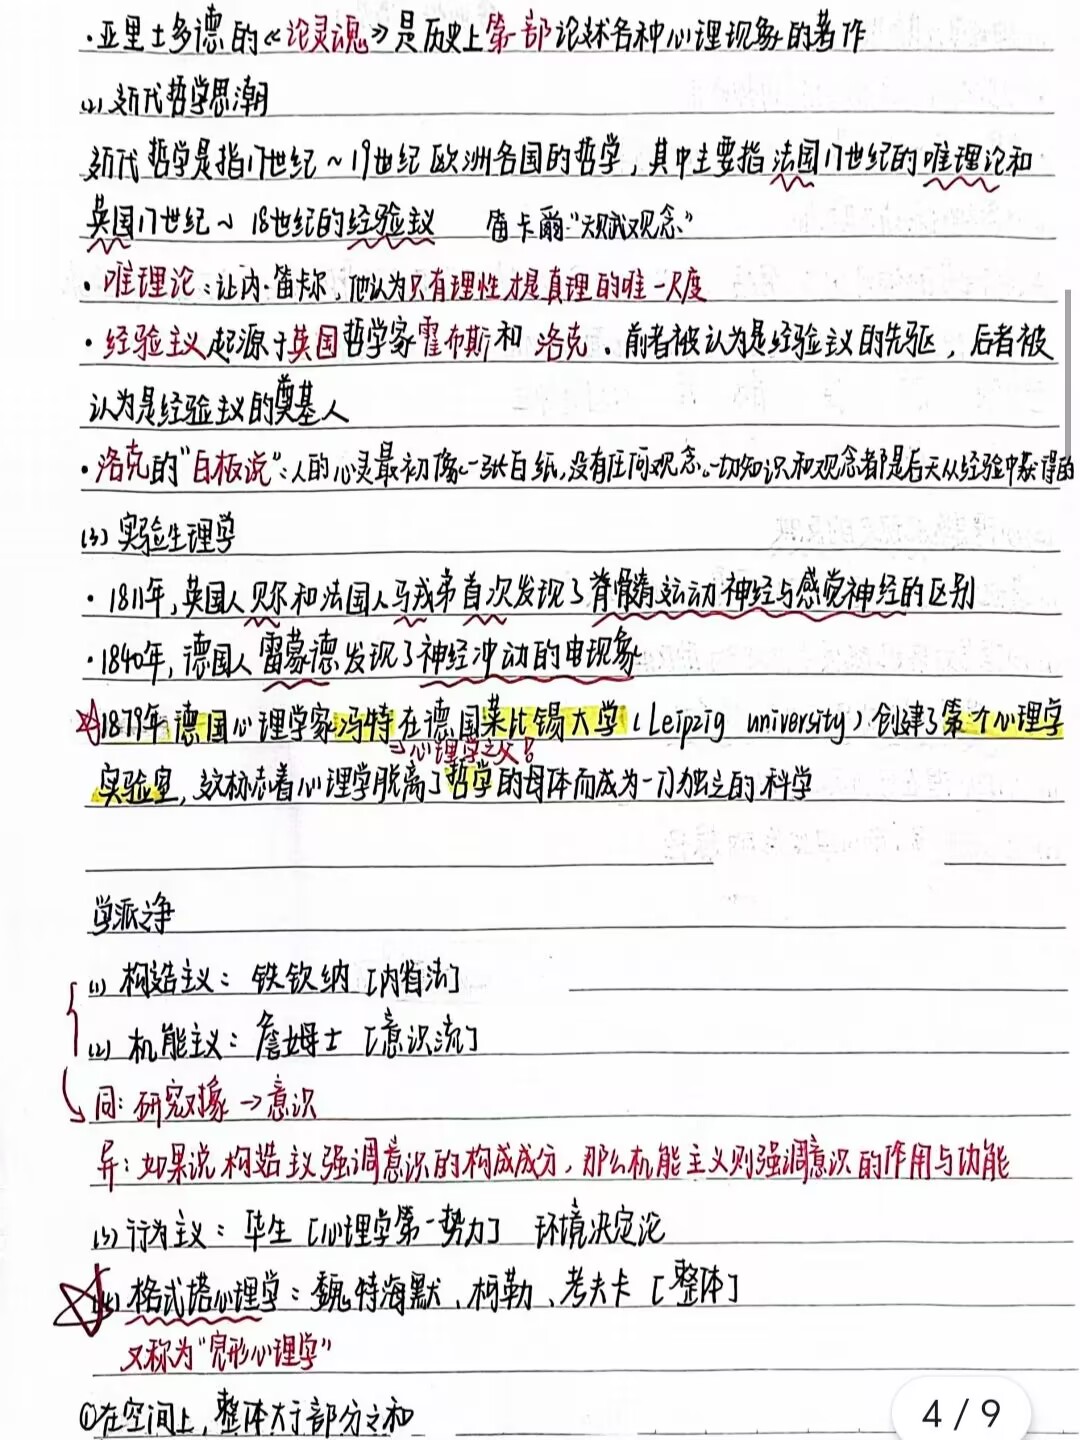 ·亚里士多德的《论灵魂》是历史上第一部论述各种心理现象的著作
(2) 近代哲学思潮
近代哲学是指17世纪~19世纪欧洲各国的哲学，其中主要指法国17世纪的唯理论和
英国17世纪~18世纪的经验主义 笛卡爾"天赋观念"
·唯理论：让内·笛卡尔，他认为只有理性才是真理的唯一尺度
·经验主义起源于英国哲学家霍布斯和洛克．前者被认为是经验主义的先驱，后者被
认为是经验主义的奠基人
·洛克的"白板说"：人的心灵最初像一张白纸，没有任何观念，一切知识和观念都是后天从经验中获得的
(3) 实验生理学
·1811年，英国人贝尔和法国人马戎弟首次发现了脊髓运动神经与感觉神经的区别
·1840年，德国人雷蒙德发现了神经冲动的电现象
☆1879年德国心理学家冯特在德国莱比锡大学（Leipzig university）创建了第一个心理学
→心理学之父
实验室，这标志着心理学脱离了哲学的母体而成为一门独立的科学
学派之争
(1) 构造主义：铁钦纳［内省法］
(2) 机能主义：詹姆士［意识流］
同：研究对象→意识
异：如果说构造主义强调意识的构成成分，那么机能主义则强调意识的作用与功能
(3) 行为主义：华生［心理学第一势力］ 环境决定论
☆(4) 格式塔心理学：魏特海默、柯勒、考夫卡［整体］
又称为"完形心理学"
①在空间上，整体大于部分之和
4 / 9